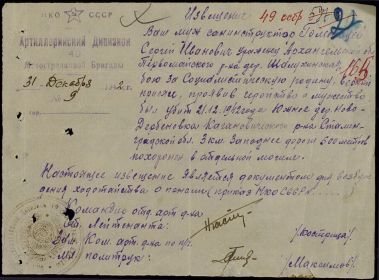 НКО СССР
Артиллерийский Дивизион
49
Мотострелковой Бригады
31 Декабря 1942 г.
№ 9
Извещение 49 осбр
Ваш муж санинструктор
Сергей Иванович уроженец Архангельской обл
Первомайского р-на дер.
бою за Социалистическую родину, верный
присяге, проявив геройство и мужество
был убит 21.12.1942 года Южнее дер. Ново-
Дербеновка Кагановичевского р-на Сталин-
градской обл. 3 км. Западнее дороги 500 метров
похоронен в отдельной могиле.
Настоящее извещение является документом для возбуж-
дения ходатайства о пенсии (приказ НКО СССР №
Командир отд. арт. д-на
Ст. Лейтенант:
/Кострица/
Зам. Ком. арт. д-на по п/ч.
Мл. политрук:
/Максимов/